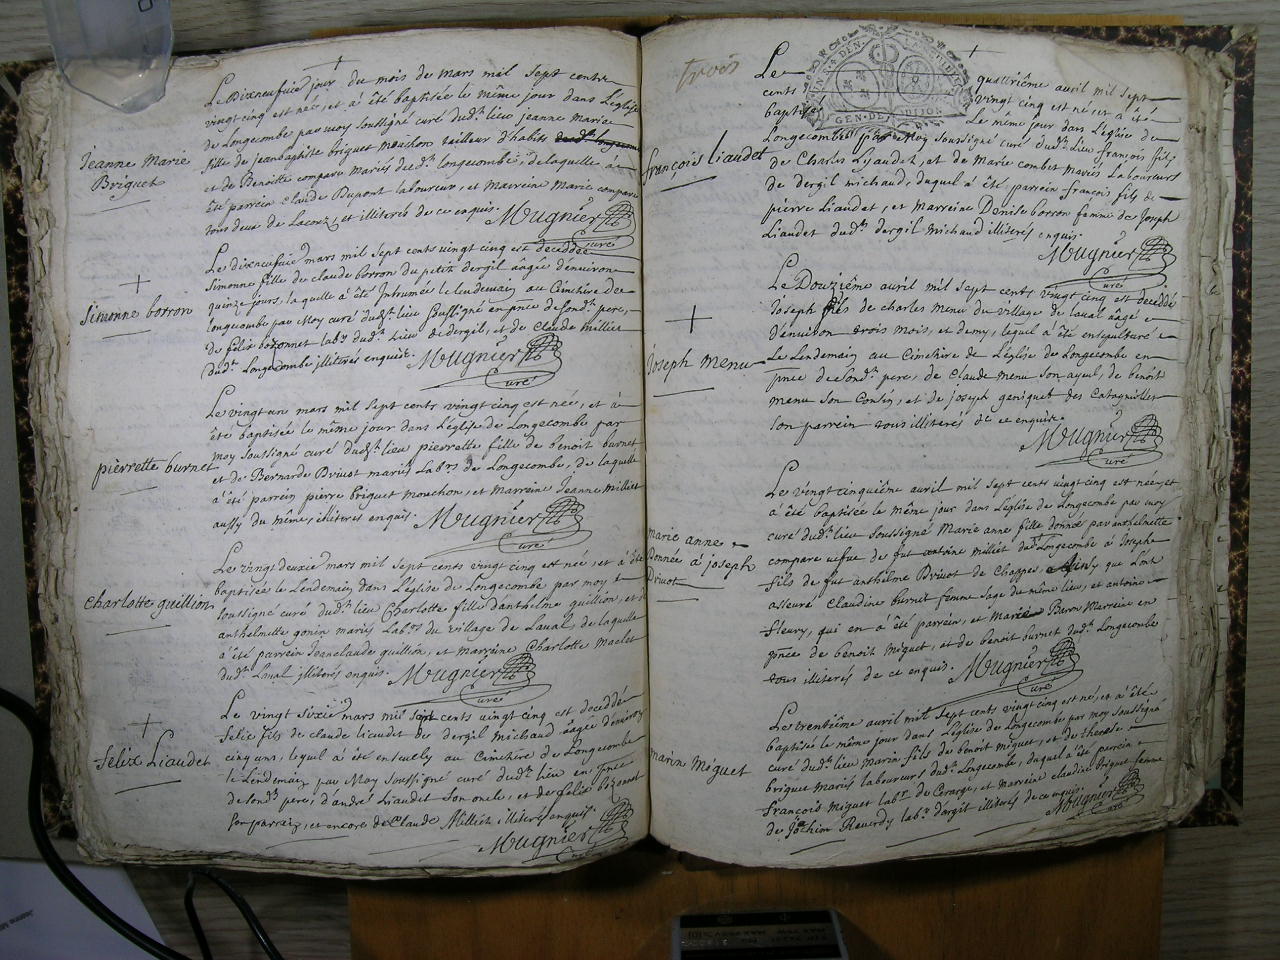 Le Dixneufvie jour du mois de mars mil sept cents
vingt cinq est née, et a été baptisée le même jour dans L'église
de Longecombe par moy soussigné curé dud.t lieu jeanne marie
fille de jeanbaptiste briguet mouchon tailleur d'habits
et de Benoitte compare mariés dud.t longecombe, delaquelle à
été parrein claude Dupont laboureur, et Marreine Marie compare
tous deux de Lacouz, et illiterés de ce enquis. Mugnier
curé
Jeanne Marie
Briguet
Le dixneufvie mars mil sept cents vingt cinq est deceddée
Simonne fille de claude borron du petit dergil aâgée d'environ
quinze jours, laquelle a été Inhumée le lendemain au Cimetiere de
longecombe par Moy curé dud.t lieu soussigné en pnce de sond.t pere,
de felix bozonnet lab.r dud.t lieu de dergil, et de Claude millier
dud.t Longecombe illiterés enquis. Mugnier
curé
Simonne borron
Le vingt un mars mil sept cents vingt cinq est née, et à
été baptisée le même jour dans L'église de Longecombe par
moy soussigné curé dud.t lieu pierrette fille de benoit burnet
et de Bernarde Drivet mariés Lab.rs de Longecombe, de laquelle
a été parrein pierre briguet mouchon, et Marreine Jeanne Milliet
aussy du même, illiterés enquis. Mugnier
curé
pierrette burnet
Le vingt deuxie mars mil sept cents vingt cinq est née, et à été
baptisée le Lendemain dans L'église de Longecombe par moy
soussigné curé dud.t lieu Charlotte fille d'anthelme guillion, et
anthelmette gonin mariés Lab.rs du village de Laval, de laquelle
a été parrein Jeanclaude guillion, et marreine Charlotte Maclet
dud.t Laval illiterés enquis. Mugnier
curé
charlotte guillion
Le vingt sixie mars mil sept cents vingt cinq est deceddé
felix fils de claude liaudet du dergil michaud aâgé d'environ
cinq ans, lequel à été enseuely au Cimetiere de Longecombe
le Lendemain par Moy soussigné curé dud.t lieu en pnce
de sond.t pere, d'andré Liaudet son oncle, et de felix bozonnet
son parrein, et encore de Claude Milliet illiterés enquis
Mugnier
felix Liaudet
trois
Le quattriême avril mil sept
cents vingt cinq est né, et a été
baptisé Le même jour dans L'église de
Longecombe par Moy soussigné curé dud.t lieu françois fils
de Charles Liaudet, et de Marie combet mariés Laboureurs
de dergil michaud, duquel a été parrein françois fils de
pierre Liaudet, et Marreine Denise borron femme de Joseph
Liaudet dud.t dergil michaud illiterés enquis.
Mugnier
curé
françois liaudet
Le Douziême avril mil sept cents vingt cinq est deceddé
Joseph fils de charles menu du village de laval aâgé
d'environ trois mois, et demy, lequel a été ensepulturé
Le Lendemain au Cimetiere de L'église de Longecombe en
pnce de sond.t pere, de Claude menu son ayeul, de benoit
menu son Cousin, et de joseph geniquet des Catagnolles
son parrein tous illiterés de ce enquis.
Mugnier
curé
Joseph Menu
Le vingt cinquiême avril mil sept cents vingt cinq est née, et
a été baptisée le même jour dans L'église de Longecombe par moy
curé dud.t lieu soussigné Marie anne fille donnée par anthelmette
compare vefve de fut antoine milliet dud.t Longecombe à Joseph
fils de fut anthelme Drivot de Chappes que Lont
asseuré Claudine burnet femme sage du même lieu, et antoine
fleury, qui en a été parrein, et Marie Baron Marreine en
pnce de benoit Miguet, et de benoit burnet dud.t Longecombe
tous illiterés de ce enquis. Mugnier
curé
marie anne
Donnée à joseph
Drivot
Le trentiême avril mil sept cents vingt cinq est né, et a été
baptisé le même jour dans L'église de Longecombe par moy soussigné
curé dud.t lieu Marin fils de benoit miguet, et de therese
briguet mariés laboureurs dud.t Longecombe, duquel a été parrein
François miguet lab.r de Corarge, et marreine claudine briguet femme
de Jochim Reverdy lab.r dargit illiterés de ce enquis. Mugnier
curé
marin Miguet